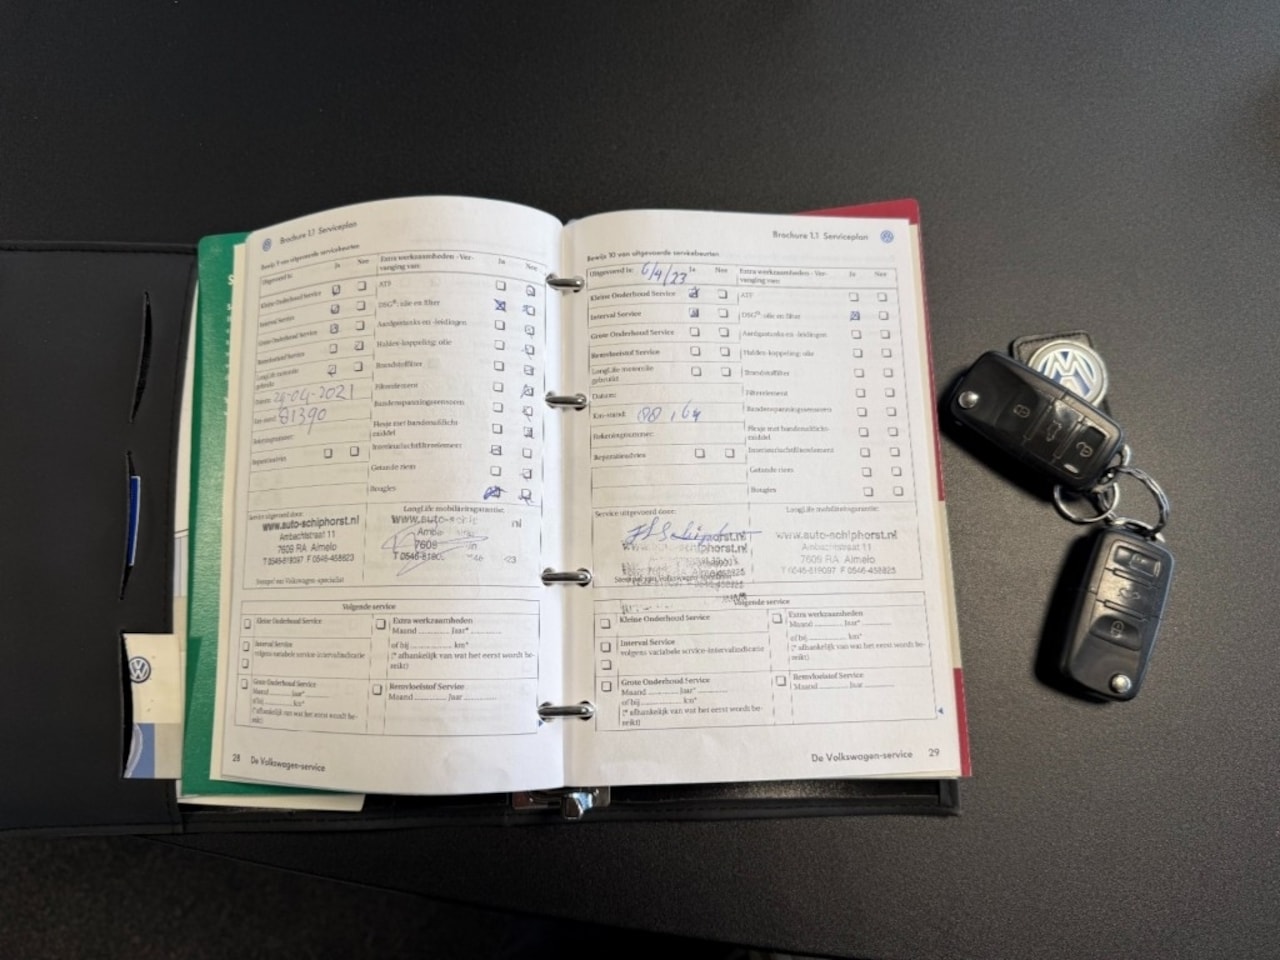 Brochure 1.1 Serviceplan
Bewijs 9 van uitgevoerde servicebeurten
Uitgevoerd is: Ja Nee
Kleine Onderhoud Service
Interval Service
Grote Onderhoud Service
Remvloeistof Service
LongLife motorolie gebruikt
Datum: 29-04-2021
Km-stand: 91390
Rekeningnummer:
Reparatieadvies
Extra werkzaamheden - Vervanging van: Ja Nee
ATF
DSG®: olie en filter
Aardgastanks en -leidingen
Haldex-koppeling: olie
Brandstoffilter
Filterelement
Bandenspanningssensoren
Flesje met bandenafdichtmiddel
Interieurluchtfilterelement
Getande riem
Bougies
Service uitgevoerd door:
www.auto-schiphorst.nl
Ambachtstraat 11
7609 RA Almelo
T 0546-819097 F 0546-458823
Stempel van Volkswagen-specialist
LongLife mobiliteitsgarantie:
Volgende service
Kleine Onderhoud Service
Interval Service
volgens variabele service-intervalindicatie
Grote Onderhoud Service
Maand ......... Jaar* .........
of bij ......... km*
(* afhankelijk van wat het eerst wordt bereikt)
Extra werkzaamheden
Maand ......... Jaar* .........
of bij ......... km*
(* afhankelijk van wat het eerst wordt bereikt)
Remvloeistof Service
Maand ......... Jaar .........
28 De Volkswagen-service
Brochure 1.1 Serviceplan
Bewijs 10 van uitgevoerde servicebeurten
Uitgevoerd is: 6/4/23 Ja Nee
Kleine Onderhoud Service
Interval Service
Grote Onderhoud Service
Remvloeistof Service
LongLife motorolie gebruikt
Datum:
Km-stand:
Rekeningnummer:
Reparatieadvies
Extra werkzaamheden - Vervanging van: Ja Nee
ATF
DSG®: olie en filter
Aardgastanks en -leidingen
Haldex-koppeling: olie
Brandstoffilter
Filterelement
Bandenspanningssensoren
Flesje met bandenafdichtmiddel
Interieurluchtfilterelement
Getande riem
Bougies
Service uitgevoerd door:
LongLife mobiliteitsgarantie:
www.auto-schiphorst.nl
Ambachtstraat 11
7609 RA Almelo
T 0546-819097 F 0546-458823
Volgende service
Kleine Onderhoud Service
Interval Service
volgens variabele service-intervalindicatie
Grote Onderhoud Service
Maand ......... Jaar* .........
of bij ......... km*
(* afhankelijk van wat het eerst wordt bereikt)
Extra werkzaamheden
Maand ......... Jaar* .........
of bij ......... km*
(* afhankelijk van wat het eerst wordt bereikt)
Remvloeistof Service
Maand ......... Jaar .........
De Volkswagen-service 29